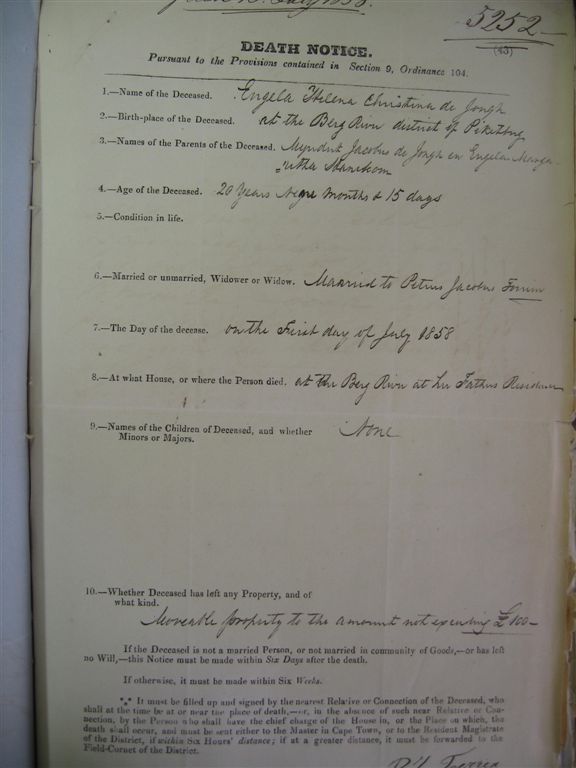 5252
(43)
DEATH NOTICE.
Pursuant to the Provisions contained in Section 9, Ordinance 104.
1.—Name of the Deceased. Engela Helena Christina de Jongh
2.—Birth-place of the Deceased. at the Berg River district of Piketberg
3.—Names of the Parents of the Deceased. Myndert Jacobus de Jongh en Engela Marga
„retha
4.—Age of the Deceased. 20 Years Nine Months & 15 days
5.—Condition in life.
6.—Married or unmarried, Widower or Widow. Married to Petrus Jacobus
7.—The Day of the decease. on the First day of July 1858
8.—At what House, or where the Person died. at the Berg River at her Fathers Residence
9.—Names of the Children of Deceased, and whether None
Minors or Majors.
10.—Whether Deceased has left any Property, and of
what kind.
Moveable property to the amount not exceeding £100—
If the Deceased is not a married Person, or not married in community of Goods,—or has left
no Will,—this Notice must be made within Six Days after the death.
If otherwise, it must be made within Six Weeks.
*** It must be filled up and signed by the nearest Relative or Connection of the Deceased, who
shall at the time be at or near the place of death,—or, in the absence of such near Relative or Con-
nection, by the Person who shall have the chief charge of the House in, or the Place on which, the
death shall occur, and must be sent either to the Master in Cape Town, or to the Resident Magistrate
of the District, if within Six Hours' distance; if at a greater distance, it must be forwarded to the
Field-Cornet of the District.